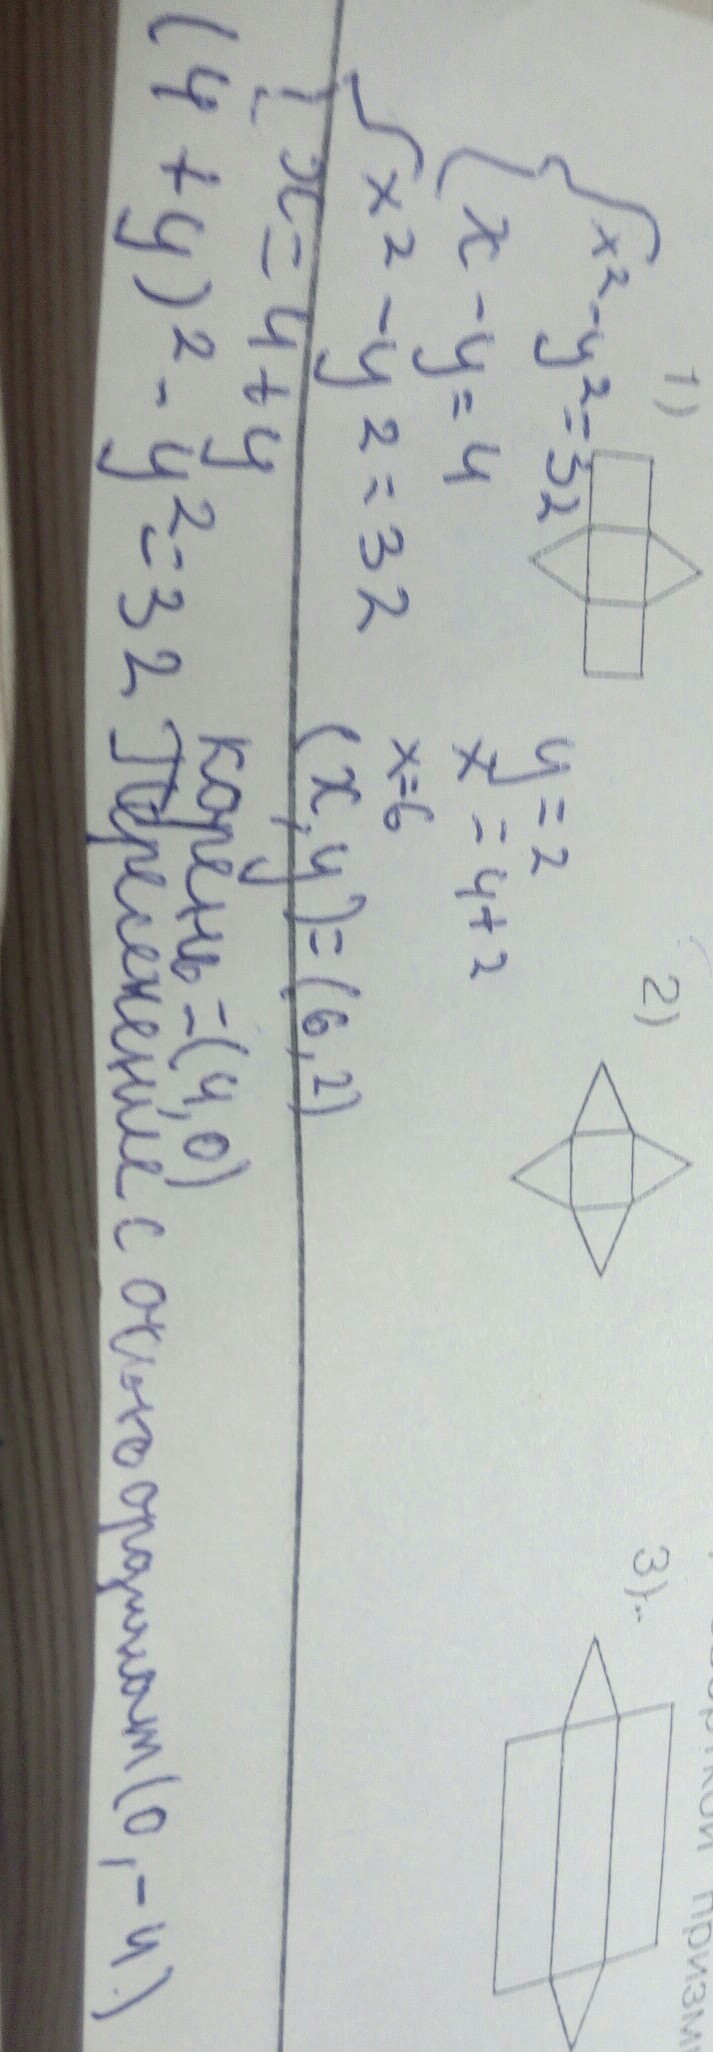 верткой призмы
1) 2) 3)
{ x² - y² = 32
{ x - y = 4
{ x2 - y2 = 32
{ x = 4 + y
(4 + y)² - y² = 32
y = 2
x = 4 + 2
x = 6
(x, y) = (6, 2)
корень = (4, 0)
Пересечение с осью ординат (0, -4)